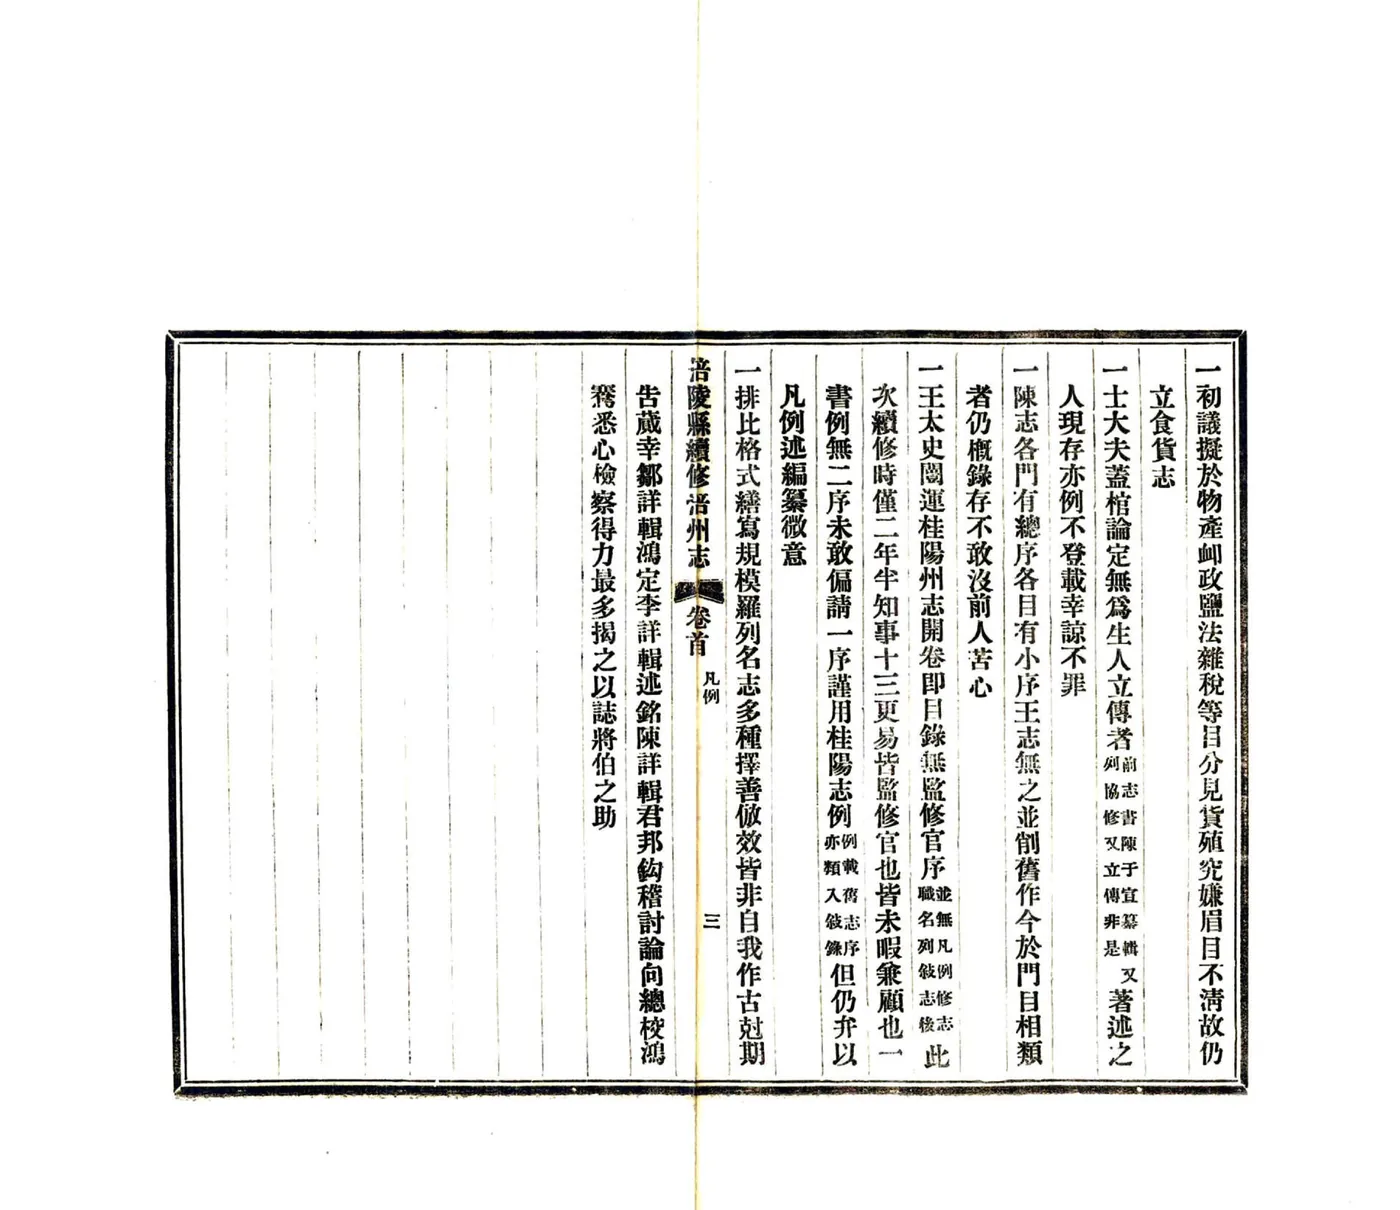 一初議擬於物產卹政鹽法雜稅等目分見貨殖究嫌眉目不清故仍
立食貨志
一士大夫蓋棺論定無爲生人立傳者前志書陳于宣纂輯又列協修又立傳非是著述之
人現存亦例不登載幸諒不罪
一陳志各門有總序各目有小序王志無之並削舊作今於門目相類
者仍概錄存不敢沒前人苦心
一王太史闓運桂陽州志開卷即目錄無監修官序並無凡例修志職名列敍志後此
次續修時僅二年半知事十三更易皆監修官也皆未暇兼顧也一
書例無二序未敢偏請一序謹用桂陽志例例載舊志序亦類入敍錄但仍弁以
凡例述編纂微意
一排比格式繕寫規模羅列名志多種擇善倣效皆非自我作古尅期
涪陵縣續修涪州志 卷首 凡例 三
告蕆幸鄒詳輯鴻定李詳輯述銘陳詳輯君邦鈎稽討論向總校鴻
騫悉心檢察得力最多揭之以誌將伯之助